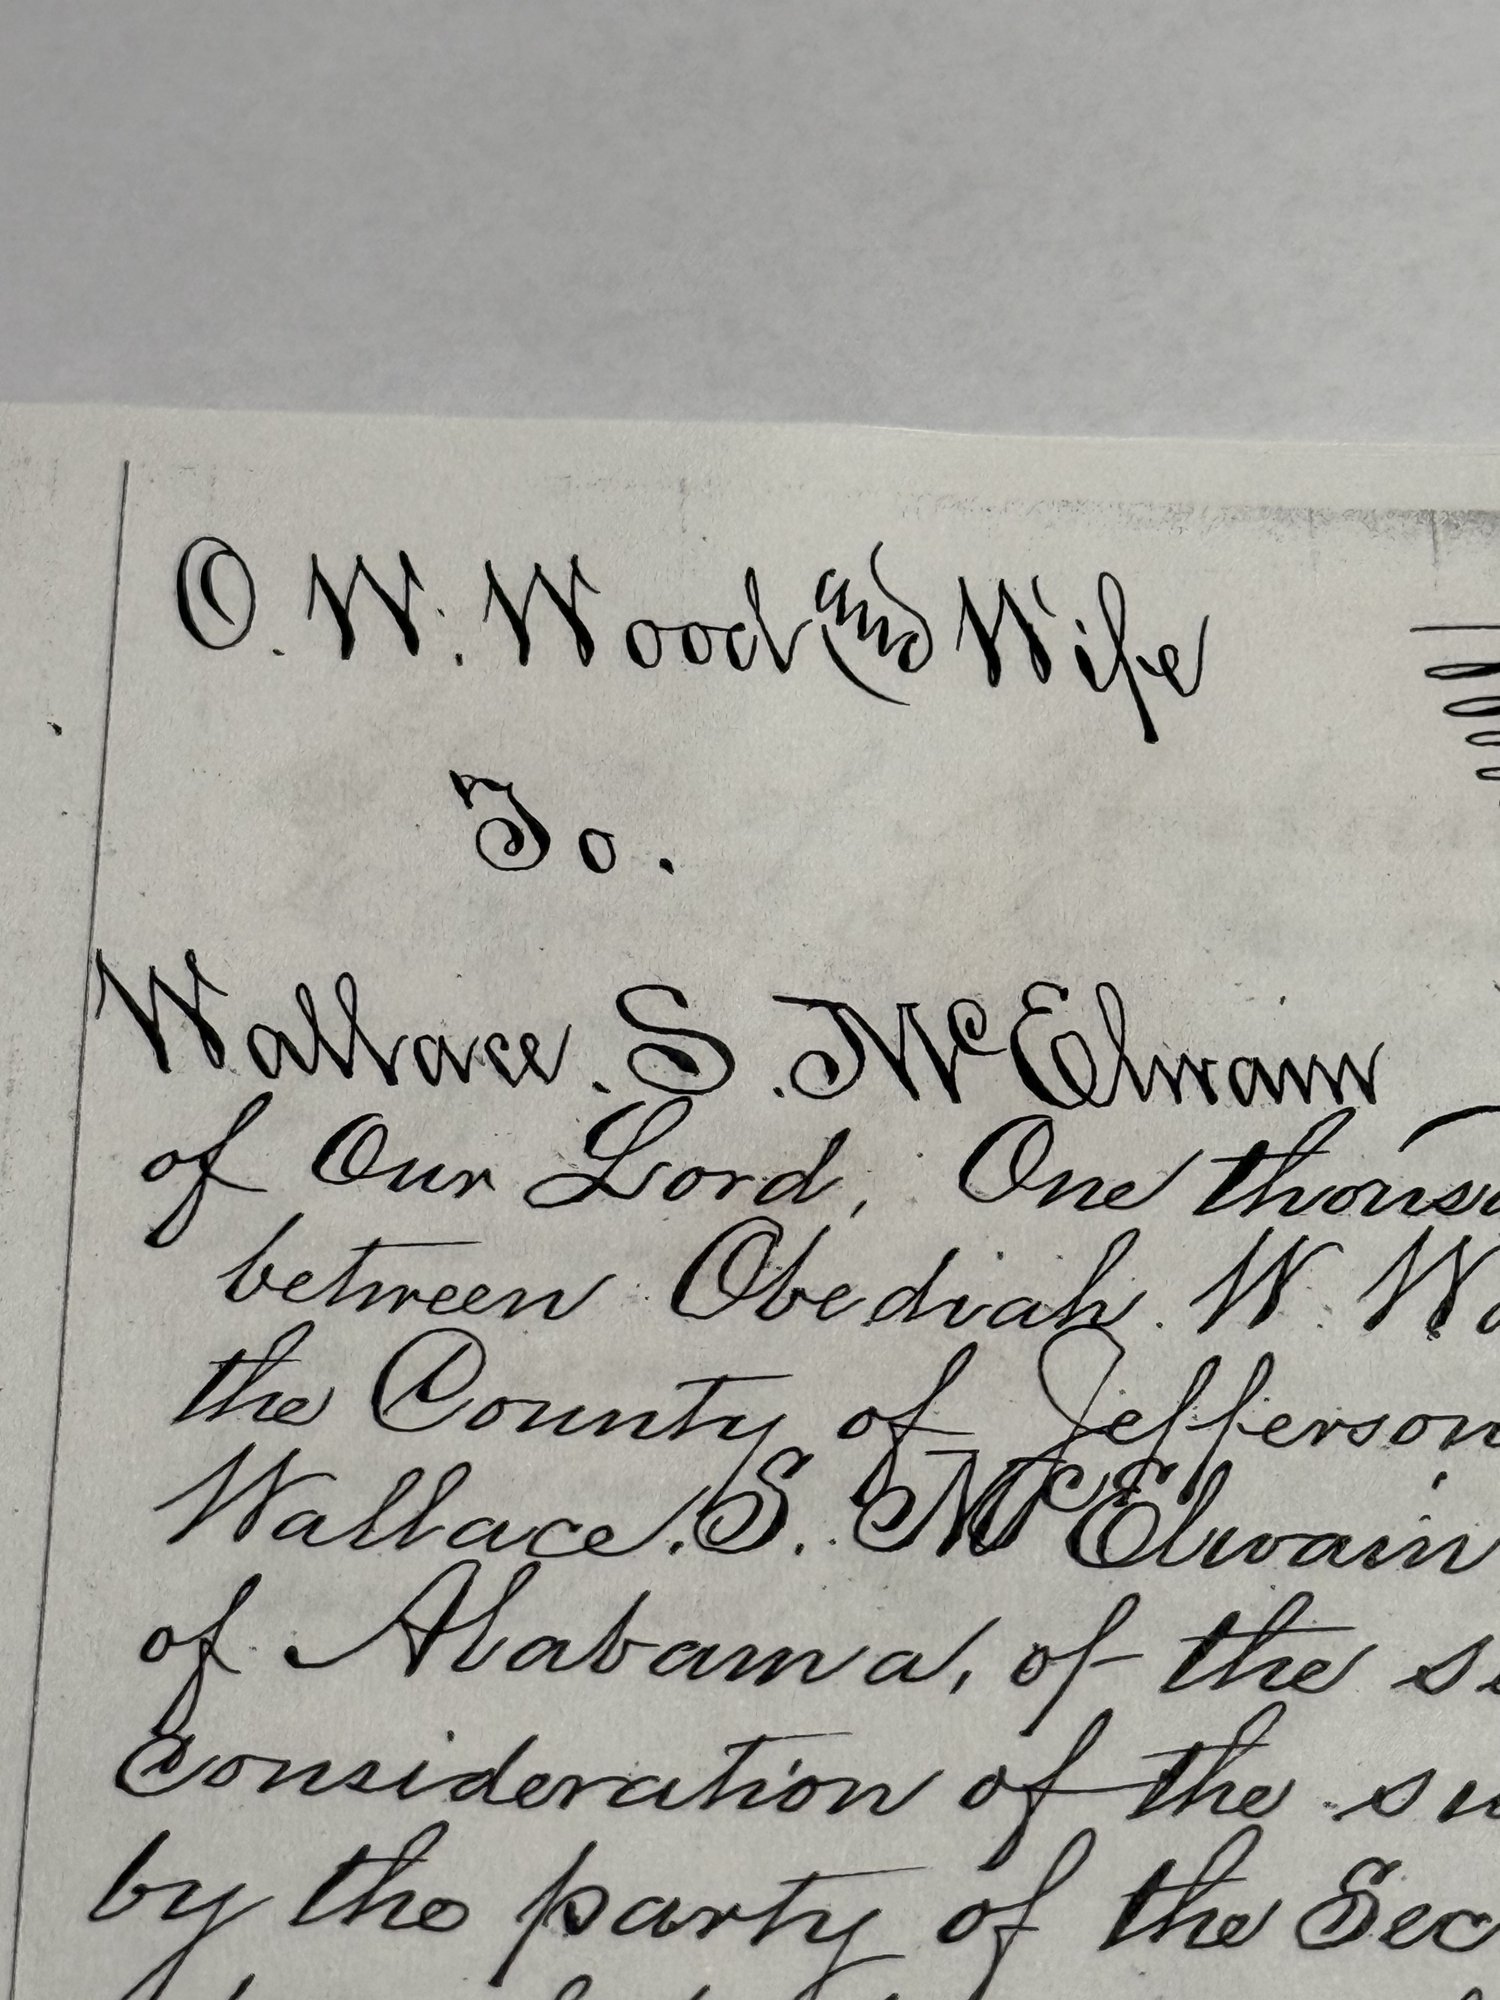 O. W. Wood and Wife
To.
Wallace. S. McElwain
of Our Lord, One thous
between Obediah. W. W
the County of Jefferson
Wallace. S. McElwain
of Alabama, of the s
Consideration of the su
by the party of the Sec